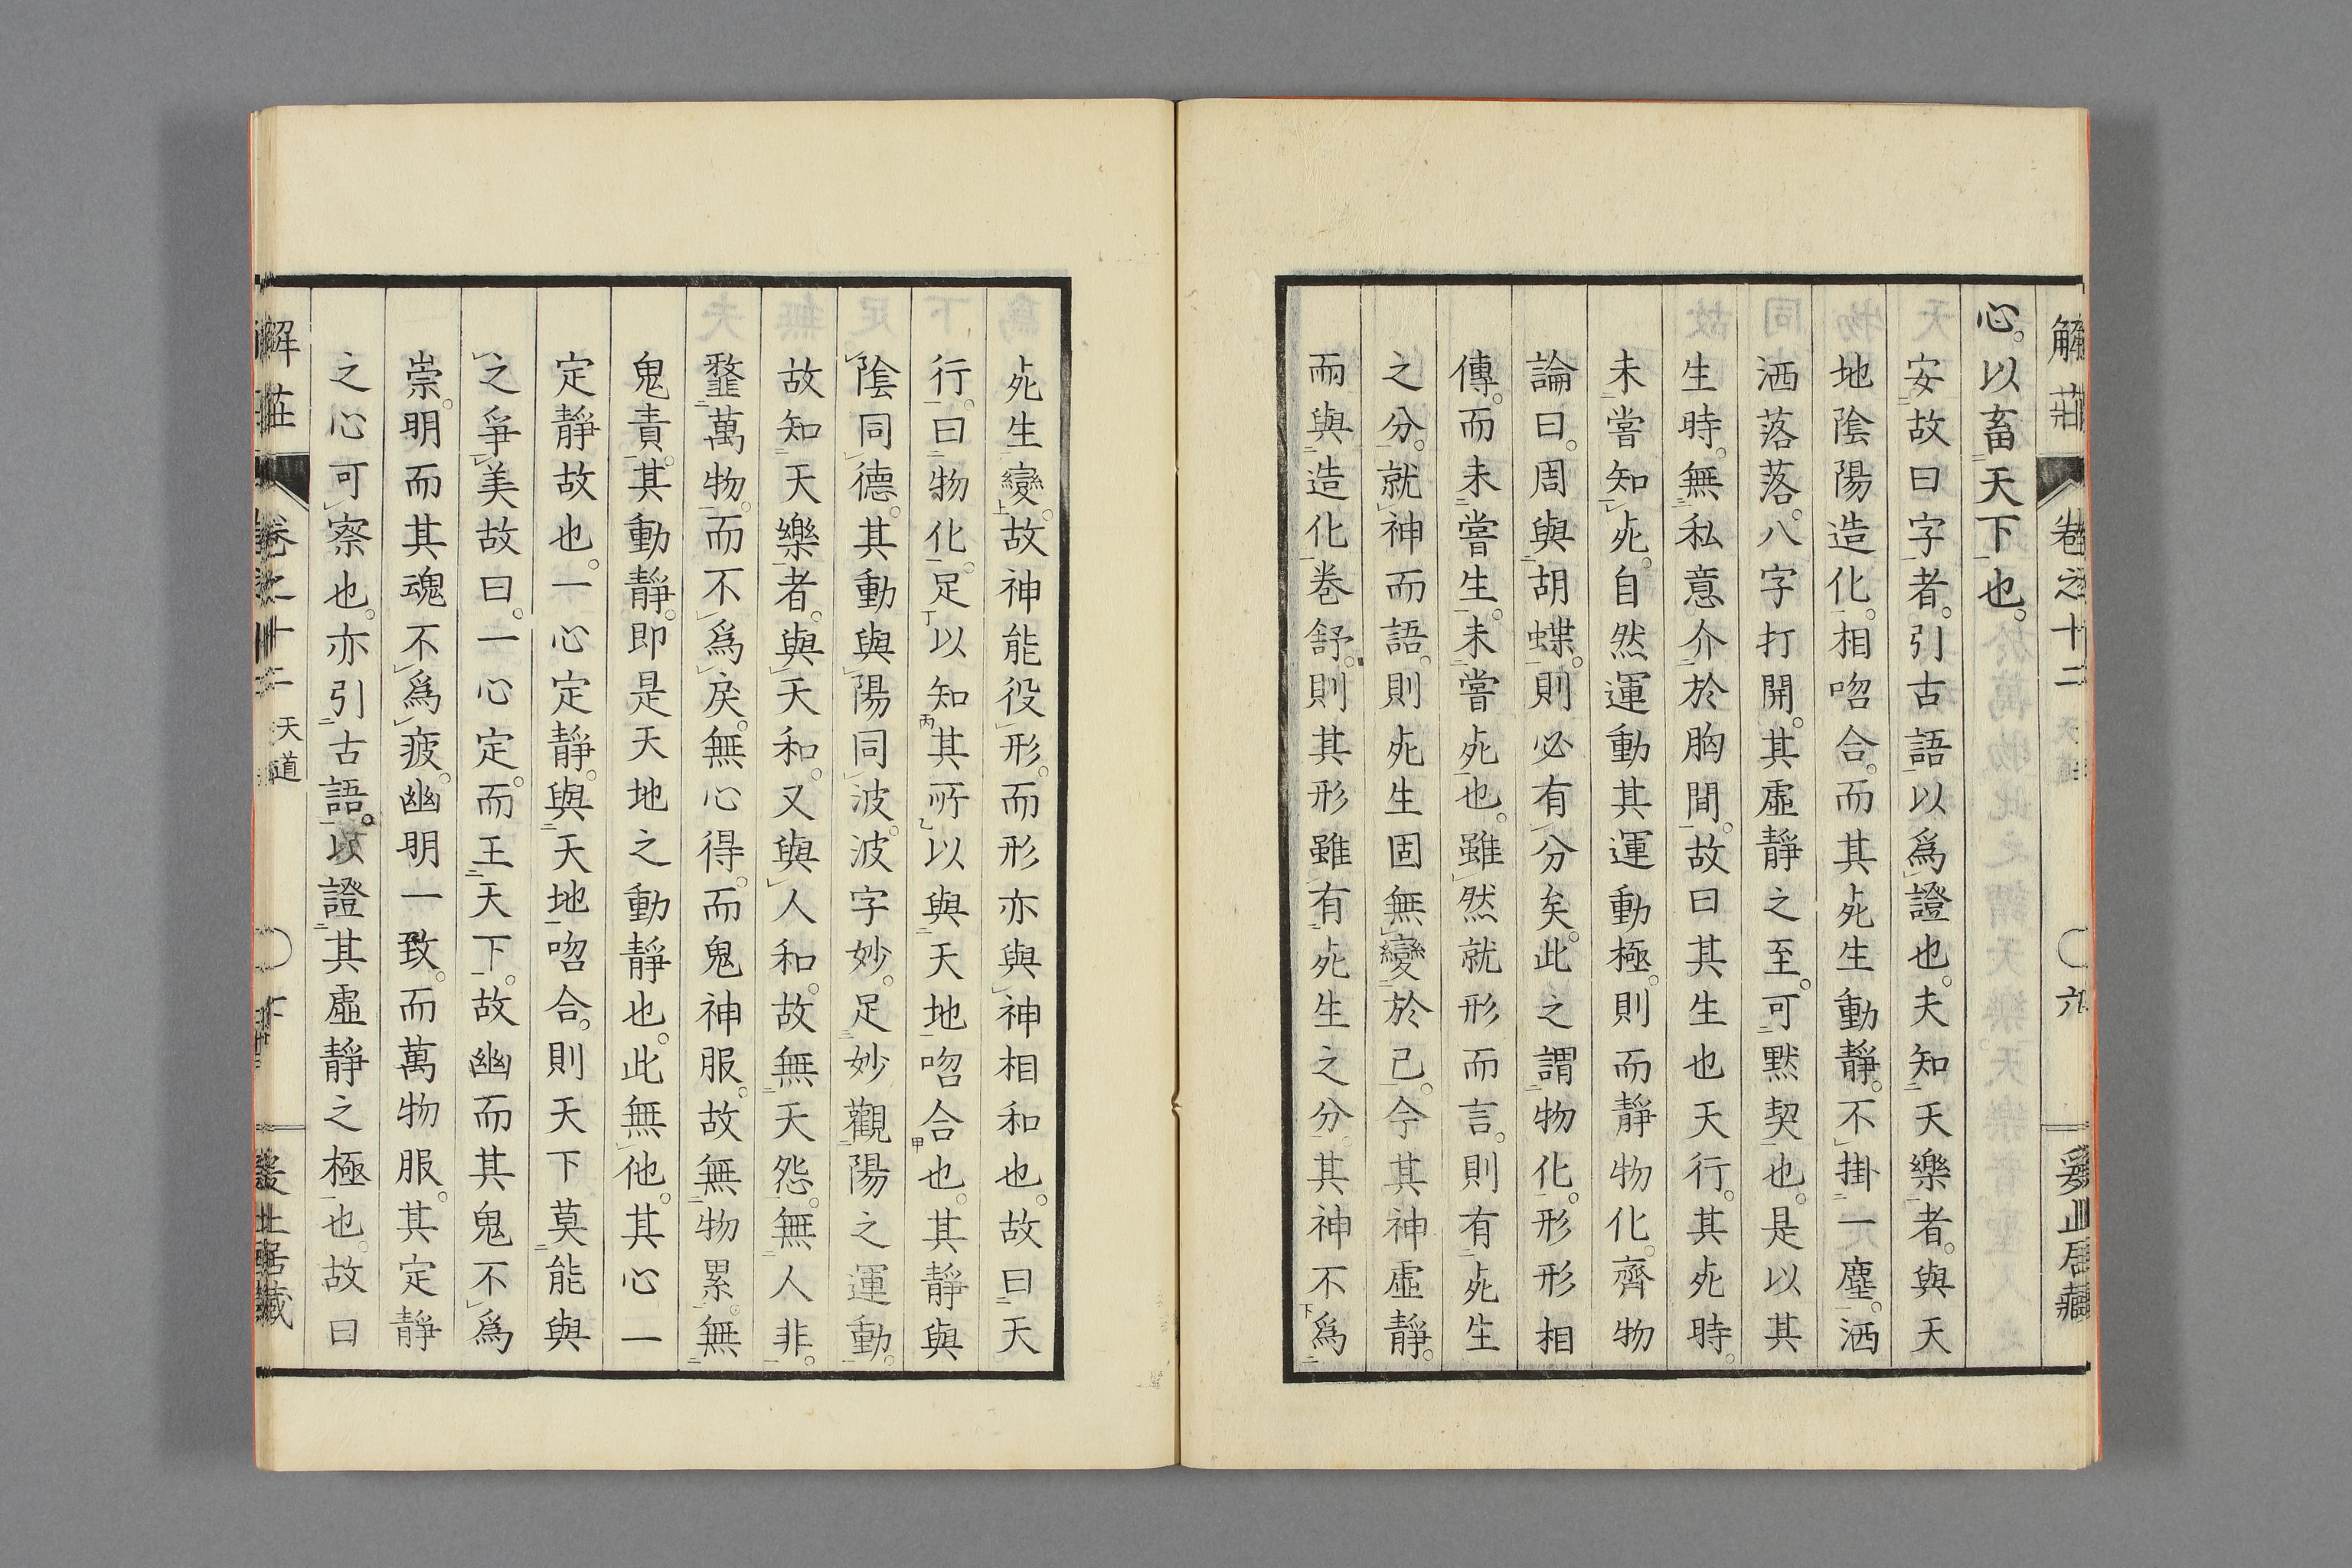 解莊 卷之十二 天道 〇六 爰止居藏
心。以畜天下也。
安。故曰字者。引古語以爲證也。夫知天樂者。與天
地陰陽造化。相吻合。而其死生動靜。不掛一塵。洒
洒落落。八字打開。其虛靜之至。可默契也。是以其
生時。無私意介於胸間。故曰其生也天行。其死時。
未嘗知死。自然運動其運動極。則而靜物化。齊物
論曰。周與胡蝶。則必有分矣。此之謂物化。形形相
傳。而未嘗生。未嘗死也。雖然就形而言。則有死生
之分。就神而語。則死生固無變於己。今其神虛靜。
而與造化卷舒。則其形雖有死生之分。其神不爲
死生變。故神能役形。而形亦與神相和也。故曰天
行。曰物化。足以知其所以與天地吻合也。其靜與
陰同德。其動與陽同波。波字妙。足妙觀陽之運動。
故知天樂者。與天和。又與人和。故無天怨。無人非。
韲萬物。而不爲戾。無心得。而鬼神服。故無物累。無
鬼責。其動靜。即是天地之動靜也。此無他。其心一
定靜故也。一心定靜。與天地吻合。則天下莫能與
之爭美。故曰。一心定。而王天下。故幽而其鬼不爲
祟。明而其魂不爲疲。幽明一致。而萬物服。其定靜
之心可察也。亦引古語。以證其虛靜之極也。故曰
解莊 卷之十二 天道